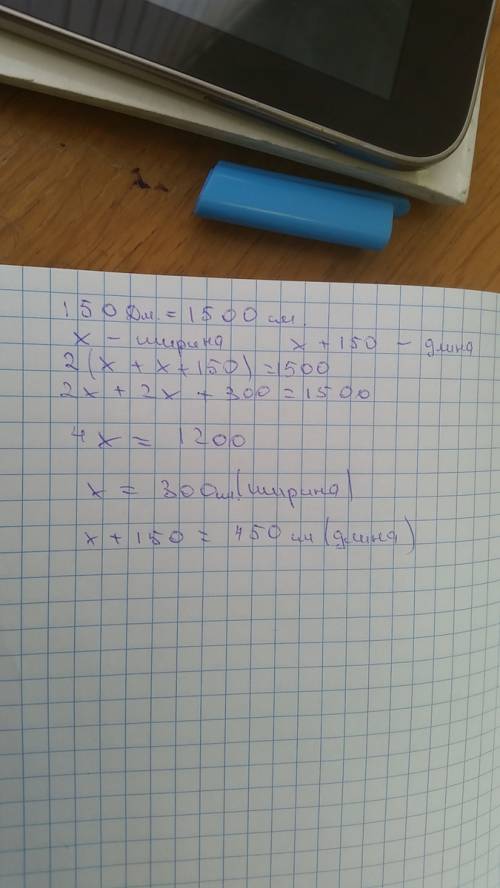 150 дм. = 1500 см.
x - ширина x + 150 - длина
2(x + x + 150) = 1500
2x + 2x + 300 = 1500
4x = 1200
x = 300см(ширина)
x + 150 = 450 см (длина)